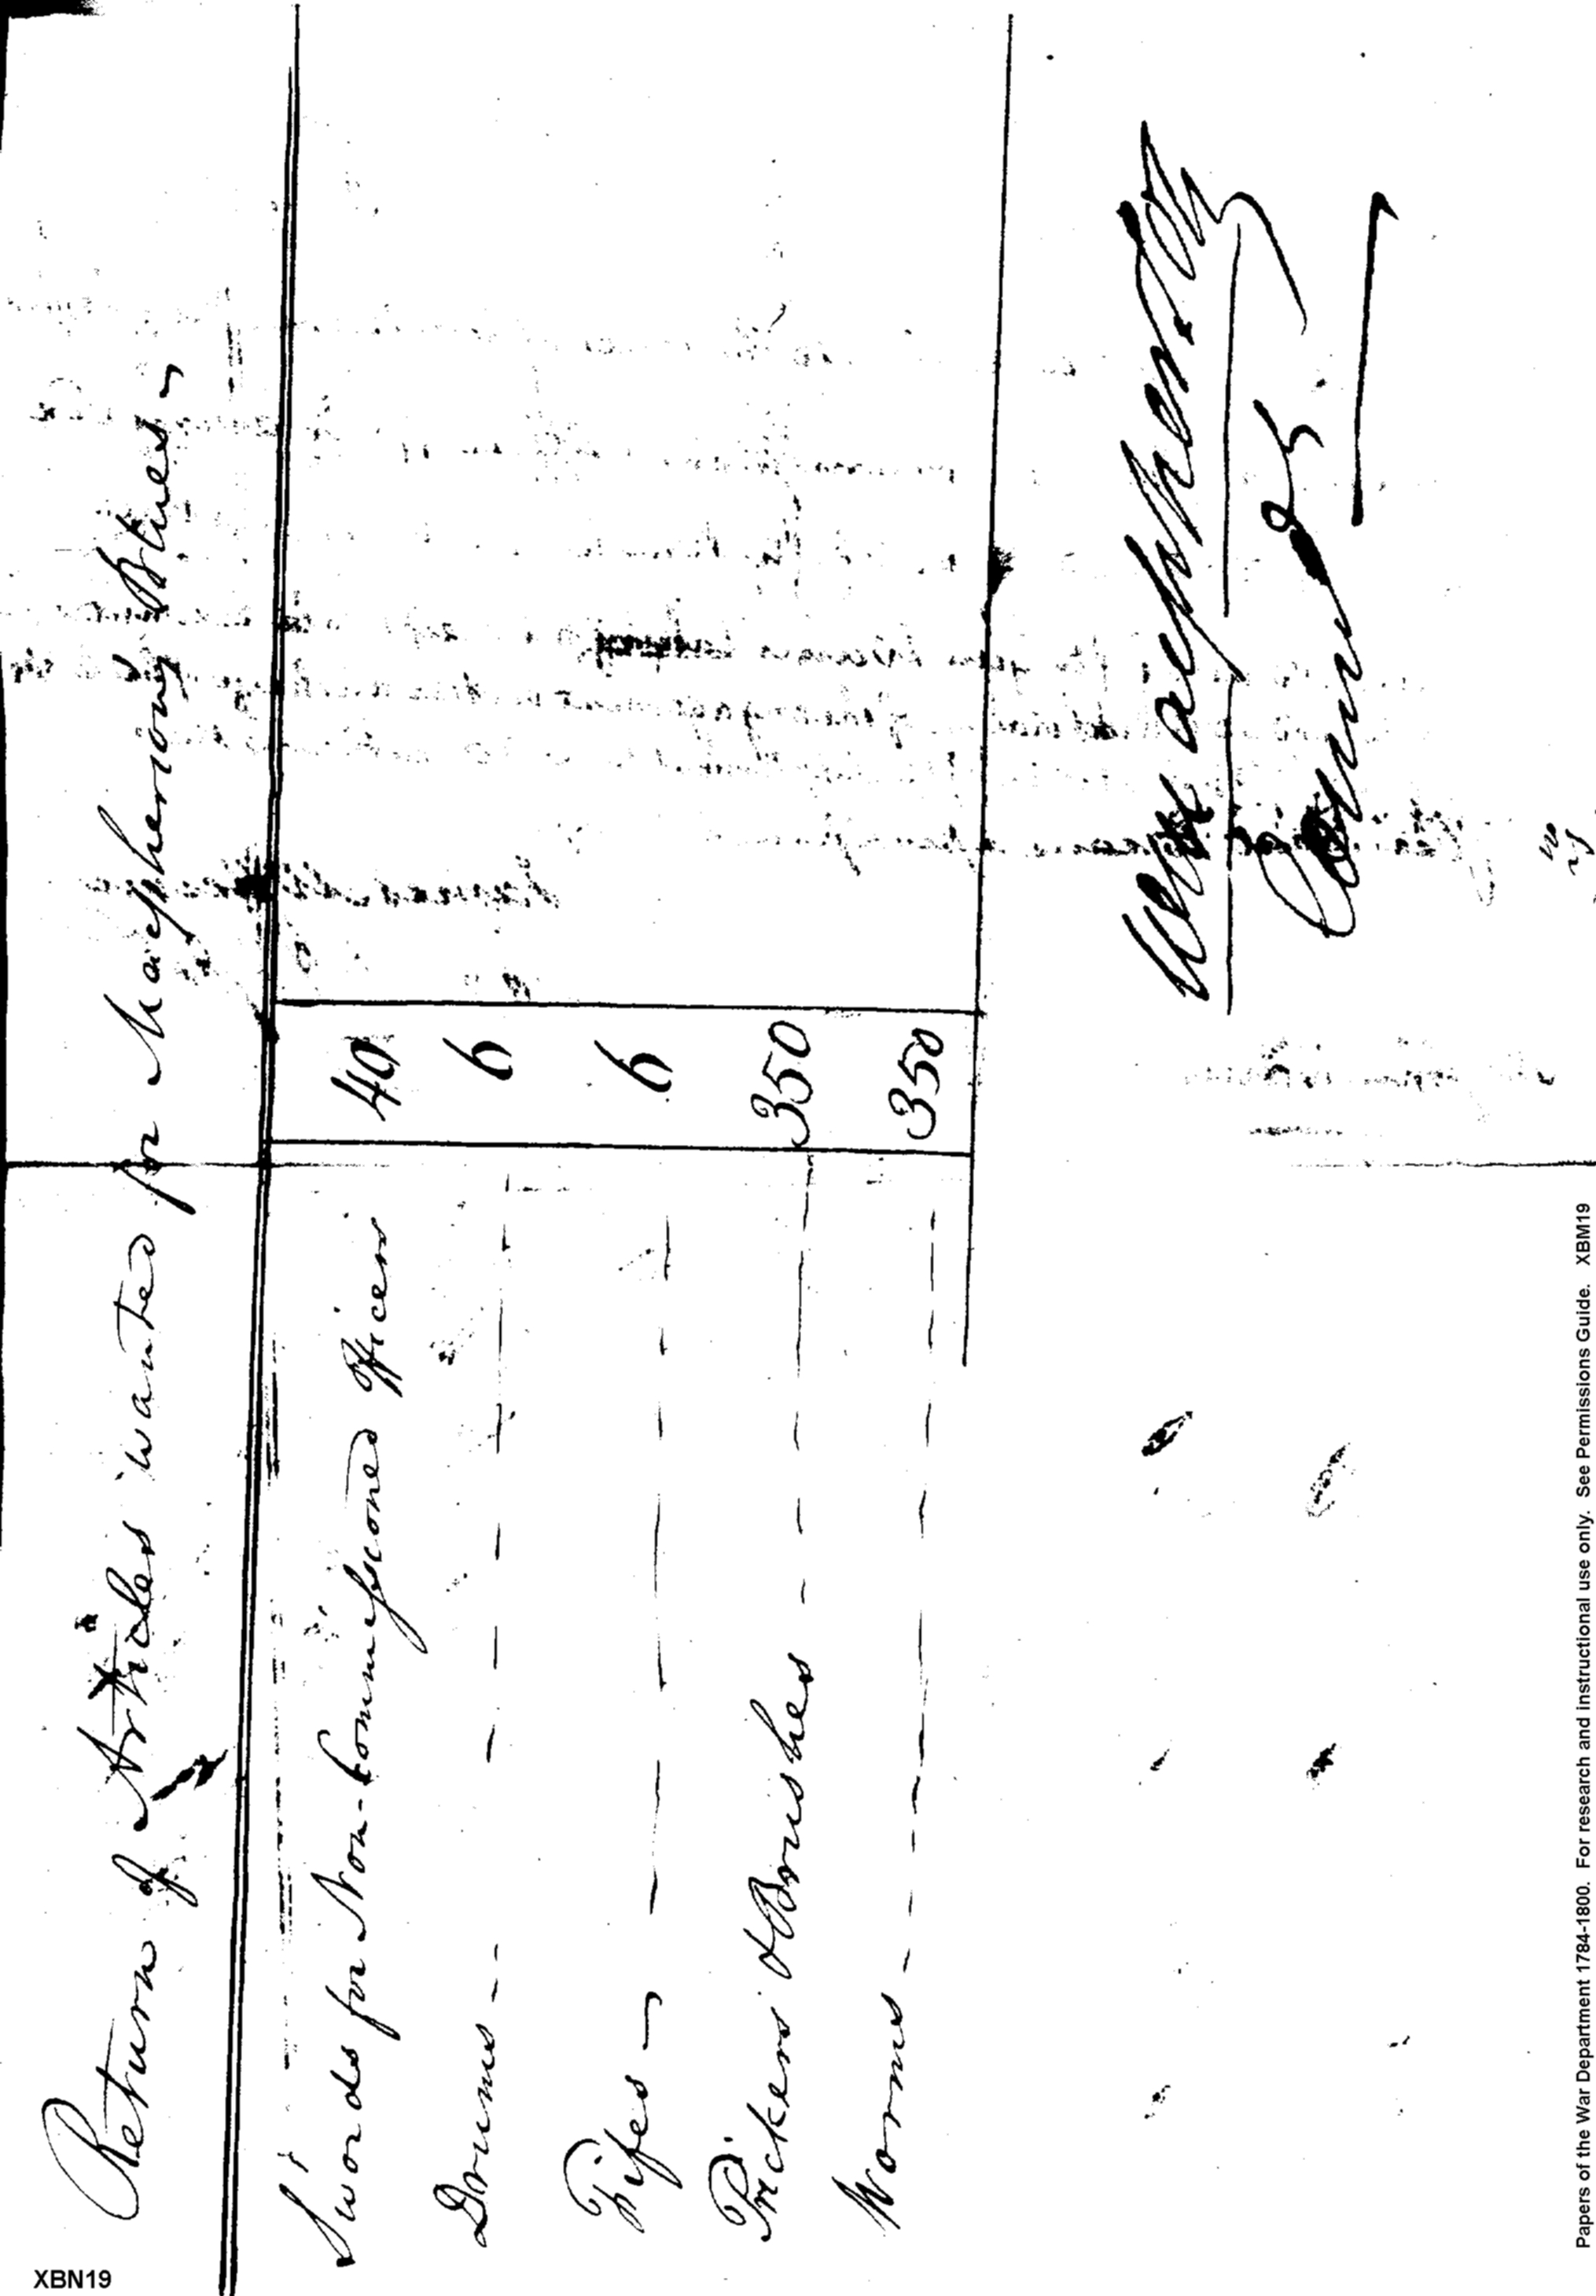 Return of Articles wanted for Macphersons Blues
Swords for Non-Commissioned Officers 40
Drums 6
Fifes 6
Prickers & Brushes 350
Worms 350
Wm Macpherson
XBN19
Papers of the War Department 1784-1800. For research and instructional use only. See Permissions Guide. XBM19